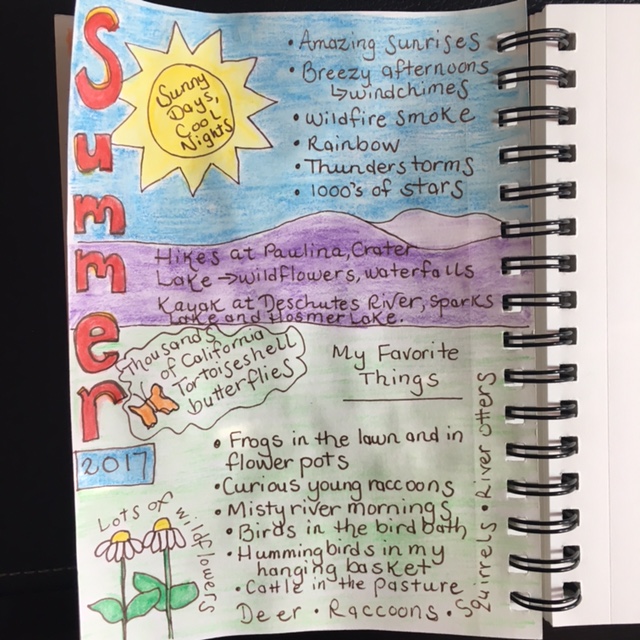 Summer
2017
Sunny
Days,
Cool
Nights
• Amazing Sunrises
• Breezy afternoons
↳windchimes
• Wildfire Smoke
• Rainbow
• Thunderstorms
• 1000's of stars
Hikes at Paulina, Crater
Lake →wildflowers, waterfalls
Kayak at Deschutes River, Sparks
Lake and Hosmer Lake.
Thousands
of California
Tortoiseshell
butterflies
My Favorite
Things
• Frogs in the lawn and in
flower pots
• Curious young raccoons
• Misty river mornings
• Birds in the bird bath
• Hummingbirds in my
hanging basket
• Cattle in the Pasture
Deer • Raccoons •
Squirrels • River otters
Lots of wildflowers